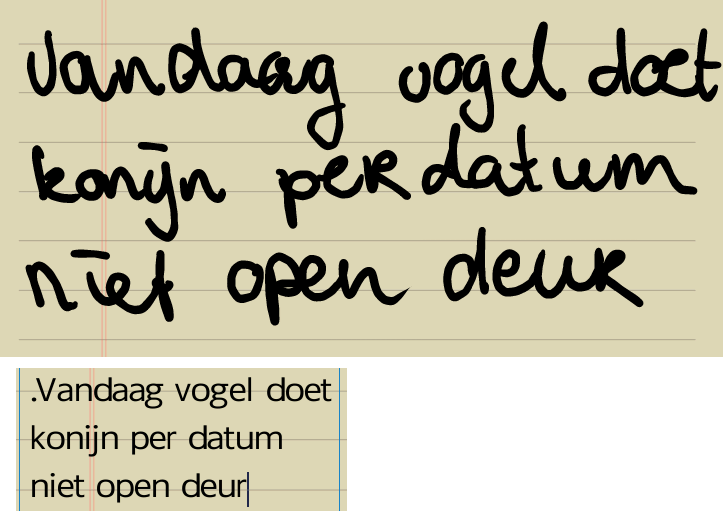 Vandaag vogel doet
konijn per datum
niet open deur
.Vandaag vogel doet
konijn per datum
niet open deur